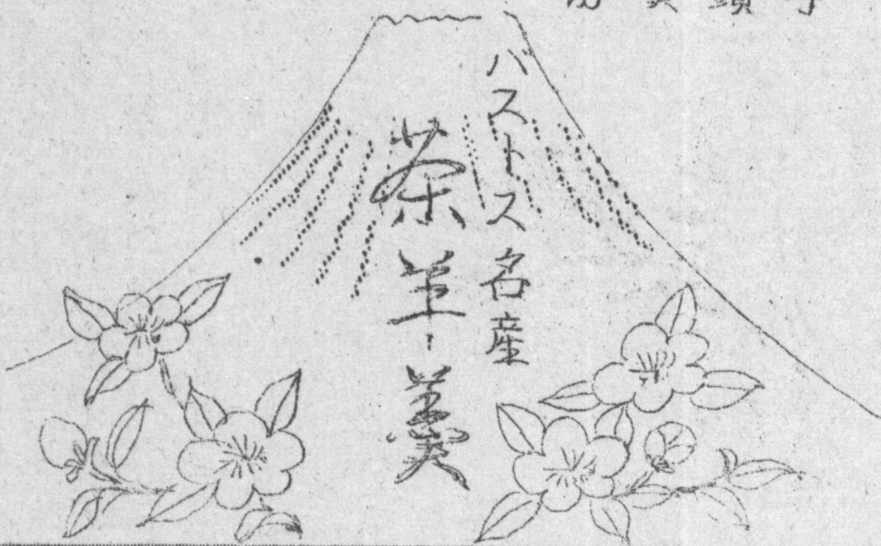 バストス名産
茶羊羹